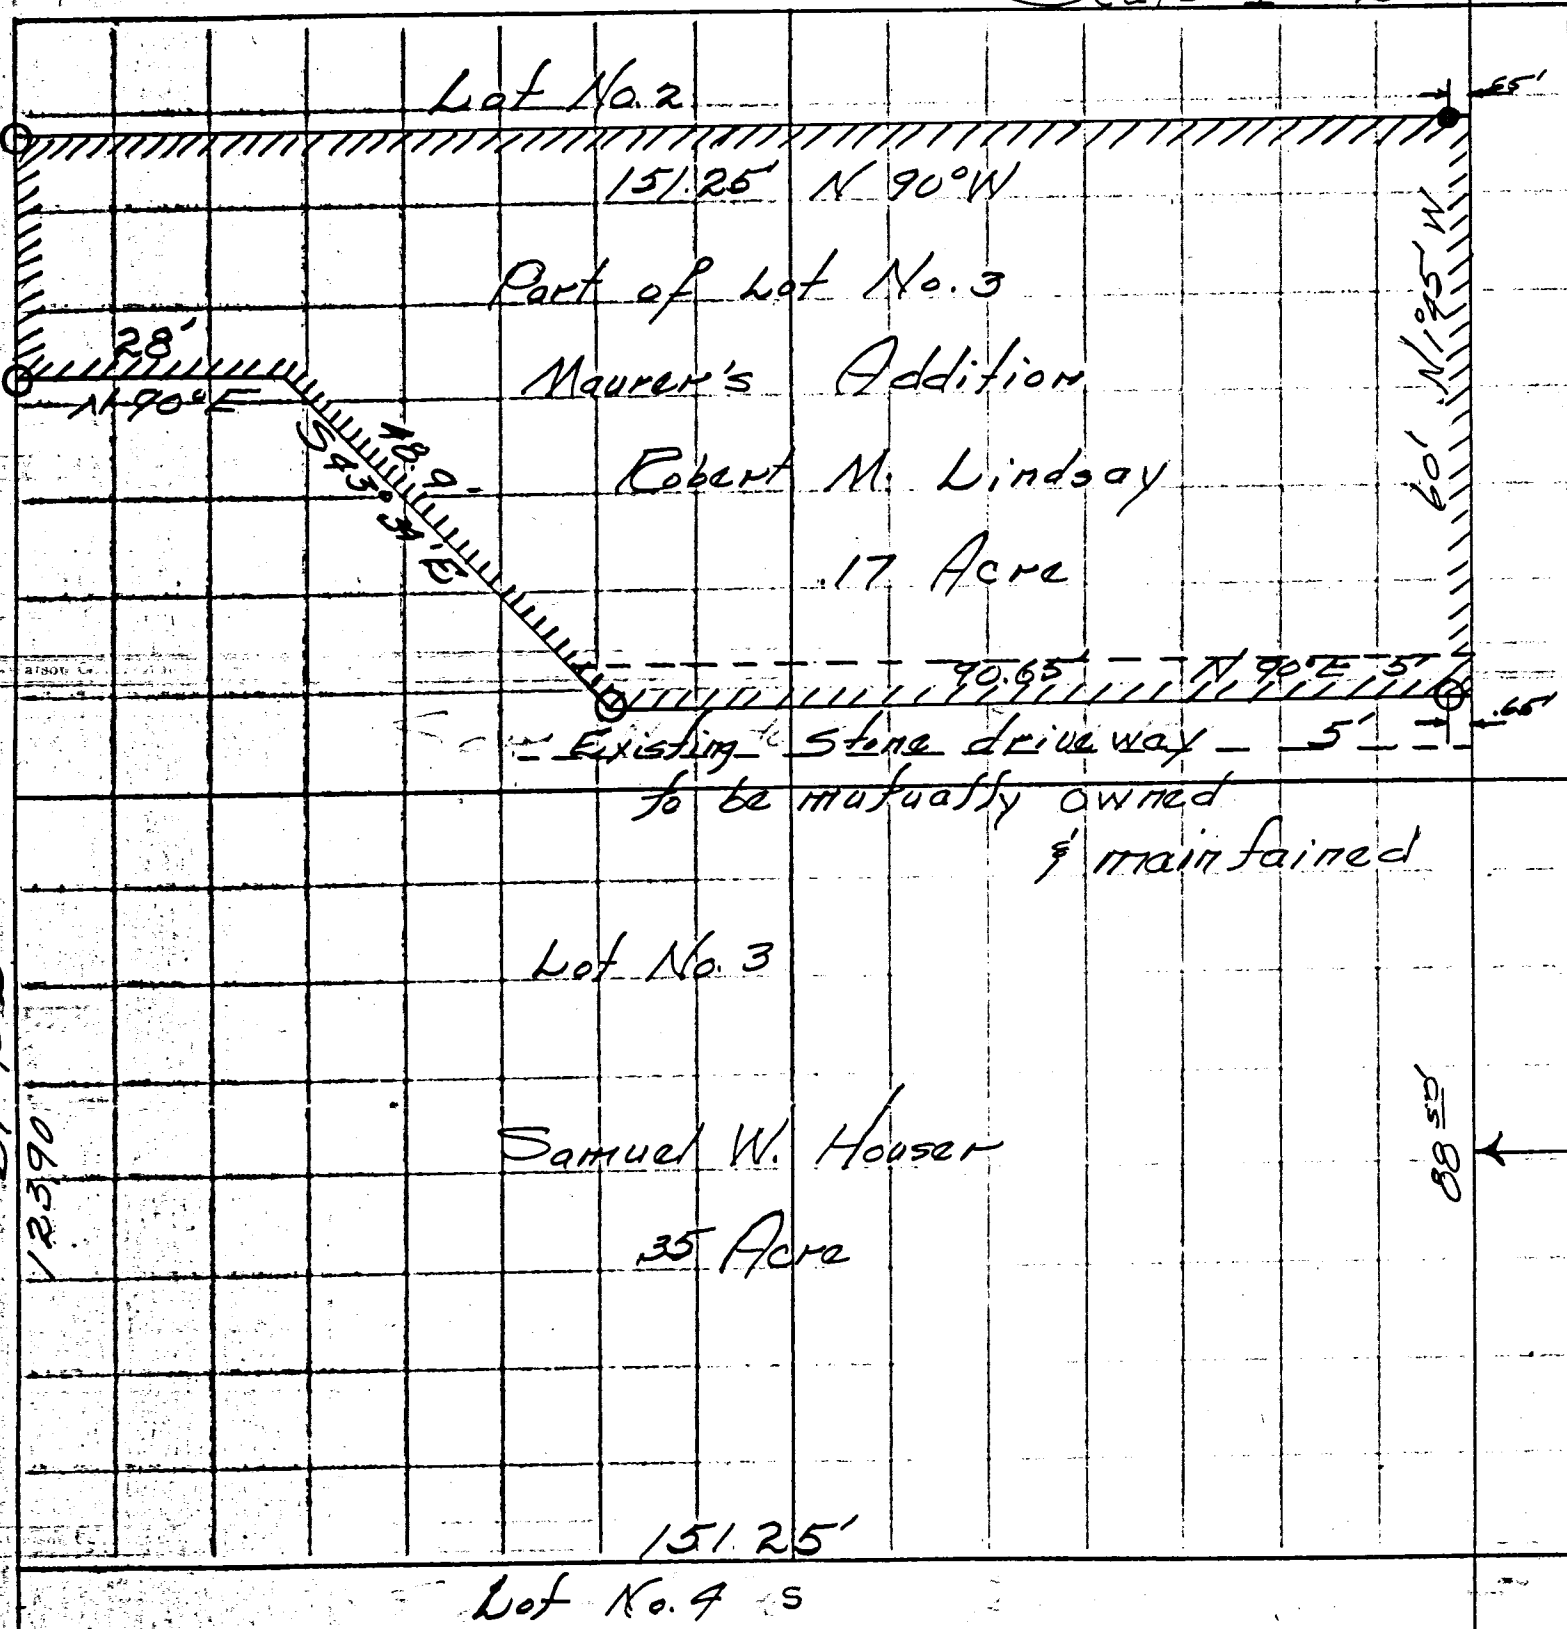 Lot No. 2
.65'
151.25' N 90°W
Part of Lot No. 3
Maurer's Addition
Robert M. Lindsay
.17 Acre
28'
N 90° E
48.9
S 43° 34' E
60' N 1°45' W
90.65' N 90°E 5'
.65'
Existing Stone driveway 5'
to be mutually owned
& maintained
Lot No. 3
Samuel W. Houser
.35 Acre
123.90
88.55'
151.25'
Lot No. 4 S